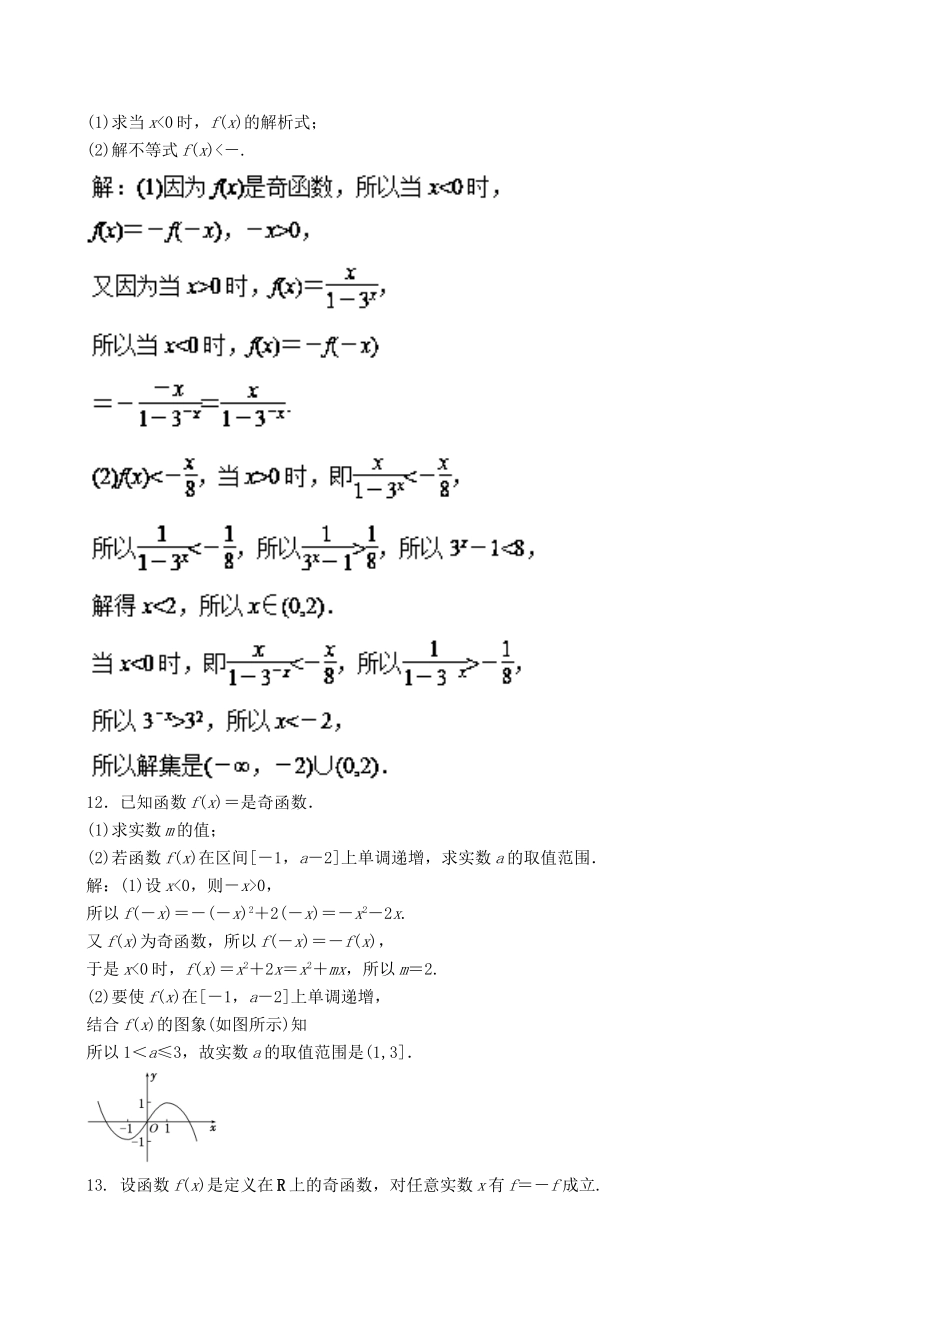 (1)求当 x<0 时，f(x)的解析式；
(2)解不等式 f(x)<－.
解：(1)因为 f(x)是奇函数，所以当 x<0 时，
f(x)＝－f(－x)，－x>0，
又因为当 x>0 时，f(x)＝x/(1－3^x)，
所以当 x<0 时，f(x)＝－f(－x)
＝－(－x)/(1－3^(－x))＝x/(1－3^(－x)).
(2)f(x)<－x/8，当 x>0 时，即 x/(1－3^x)<－x/8，
所以 1/(1－3^x)<－1/8，所以 1/(3^x－1)>1/8，所以 3^x－1<8，
解得 x<2，所以 x∈(0,2)．
当 x<0 时，即 x/(1－3^(－x))<－x/8，所以 1/(1－3^x)>－1/8，
所以 3^(－x)>3²，所以 x<－2，
所以解集是(－∞，－2)∪(0,2)．
12．已知函数 f(x)＝是奇函数．
(1)求实数 m 的值；
(2)若函数 f(x)在区间[－1，a－2]上单调递增，求实数 a 的取值范围．
解：(1)设 x<0，则－x>0，
所以 f(－x)＝－(－x)²＋2(－x)＝－x²－2x.
又 f(x)为奇函数，所以 f(－x)＝－f(x)，
于是 x<0 时，f(x)＝x²＋2x＝x²＋mx，所以 m＝2.
(2)要使 f(x)在[－1，a－2]上单调递增，
结合 f(x)的图象(如图所示)知
所以 1＜a≤3，故实数 a 的取值范围是(1,3]．
y
1
－1 O 1 x
－1
13. 设函数 f(x)是定义在 R 上的奇函数，对任意实数 x 有 f＝－f 成立.